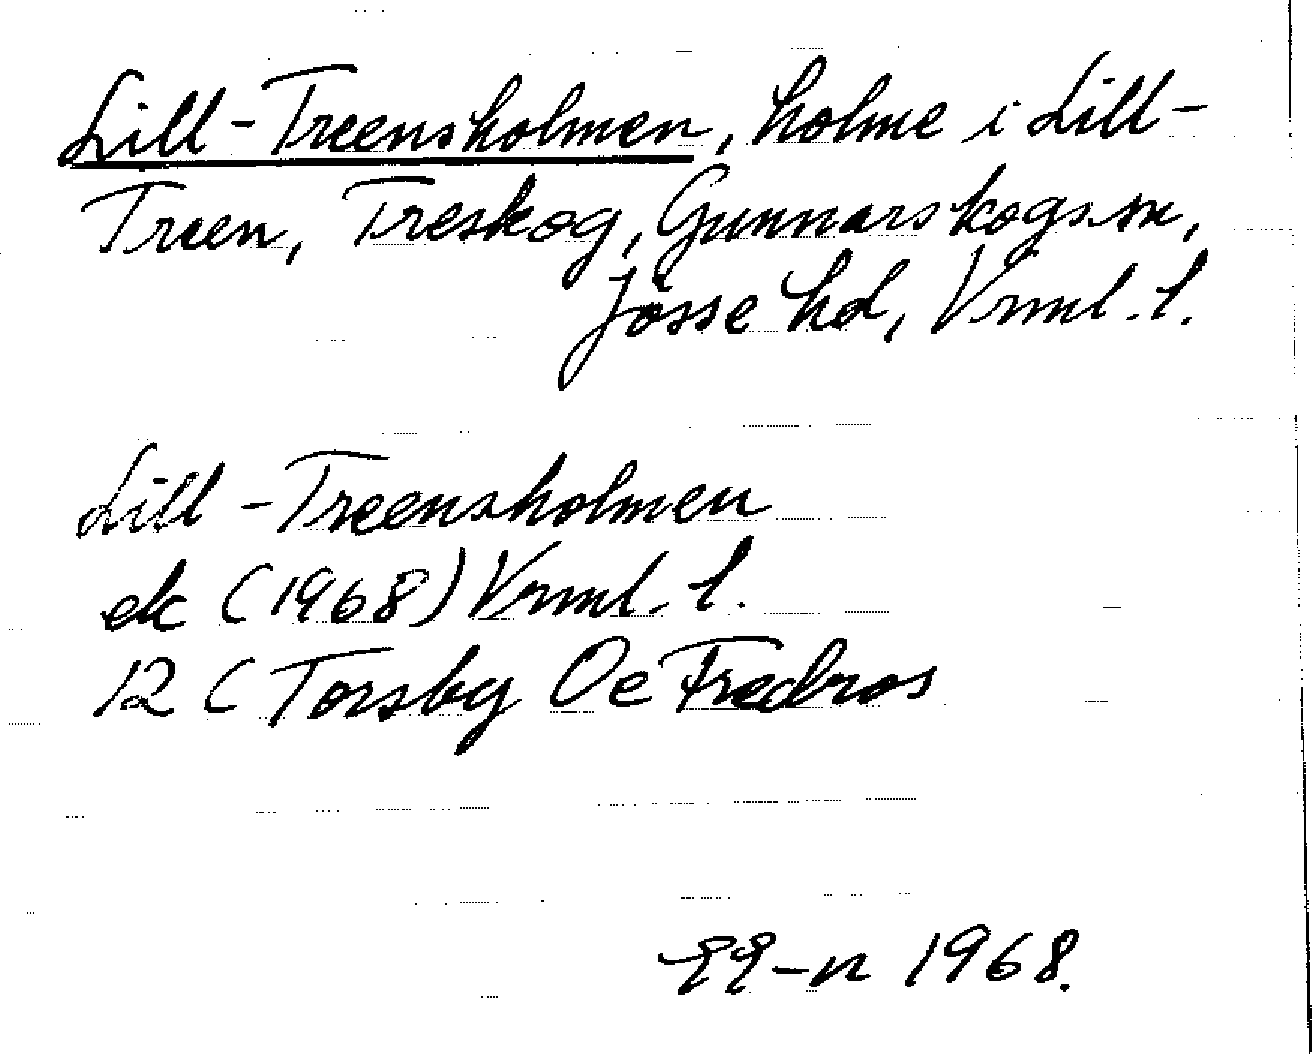 Lill-Treensholmen, holme i Lill-
Treen, Treskog, Gunnarskogs sn,
Jösse hd, Vrml. l.
Lill-Treensholmen
ek (1968) Vrml. l.
12 C Torsby 0e Fredros
1968.